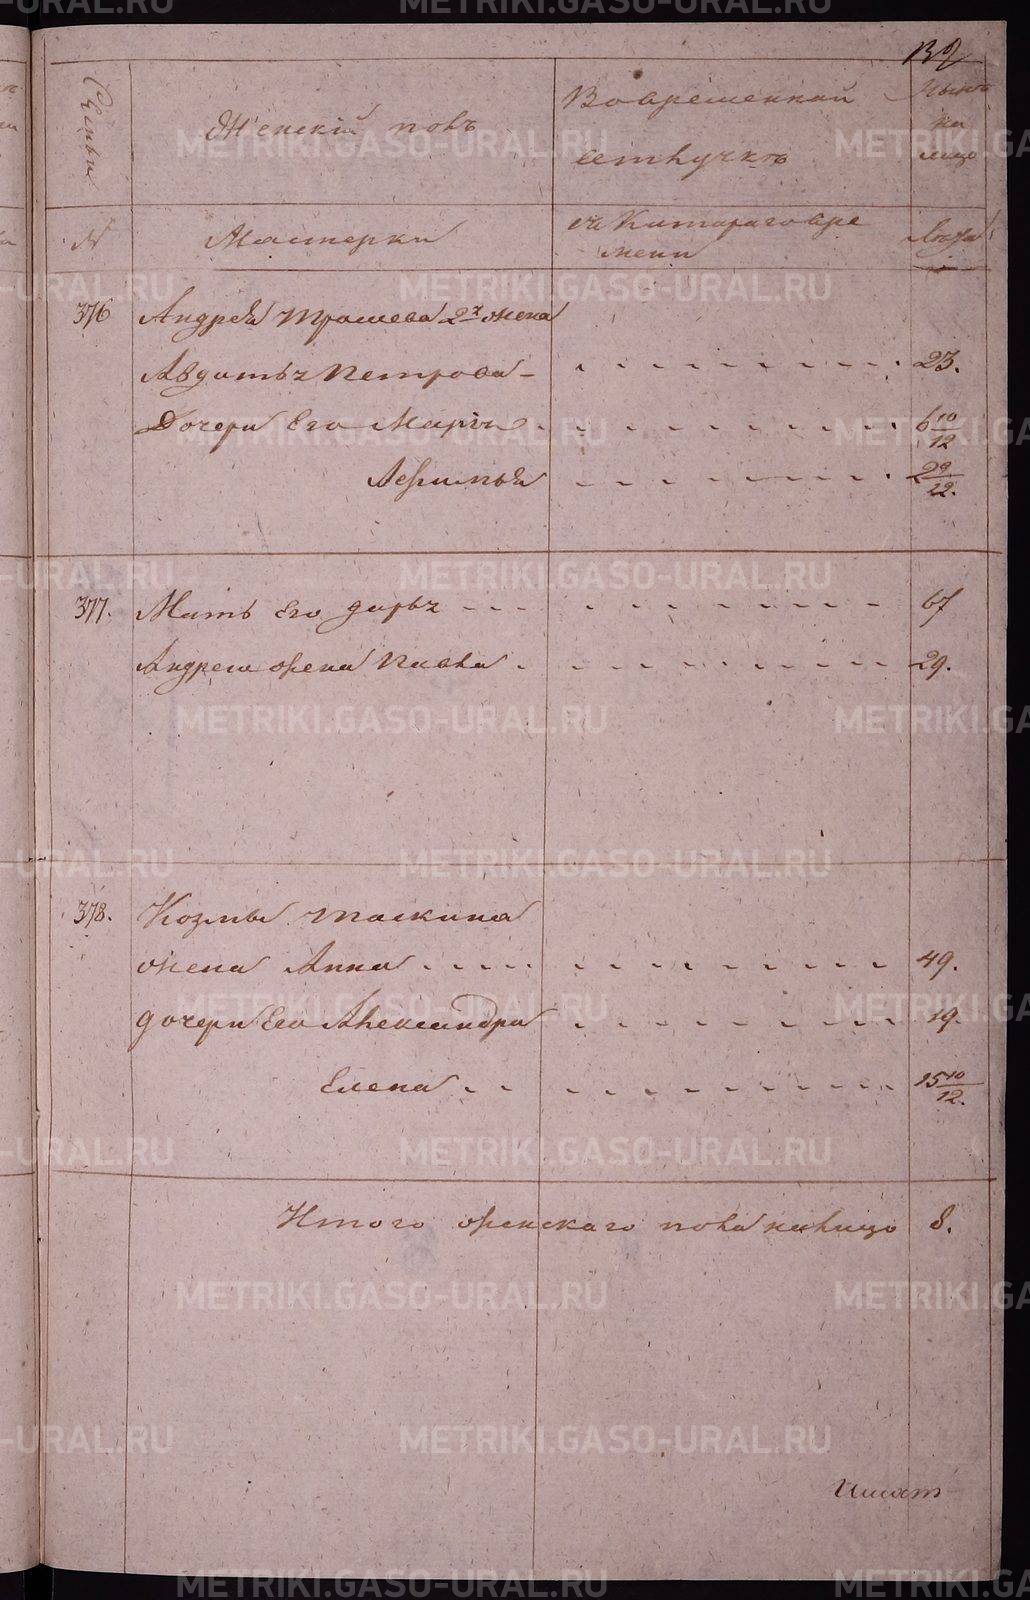 132
Семьи
Женскiй полъ
Во временной
отлучкѣ
Ныне
на
лицо
№
Мастерки
съ Котораго вре
мени
лѣта
376
Андрея Трошева 2х жена
Авдотья Петрова
23.
Дочери Его Марья
6 10/12
Афимья
2 9/12.
377.
Мать Его дарья
67
Андрея жена
29.
378.
Козмы таскина
жена Анна
49.
дочери Его Александра
19.
Елена
15 10/12.
Итого женскаго пола налицо
8.
METRIKI.GASO-URAL.RU